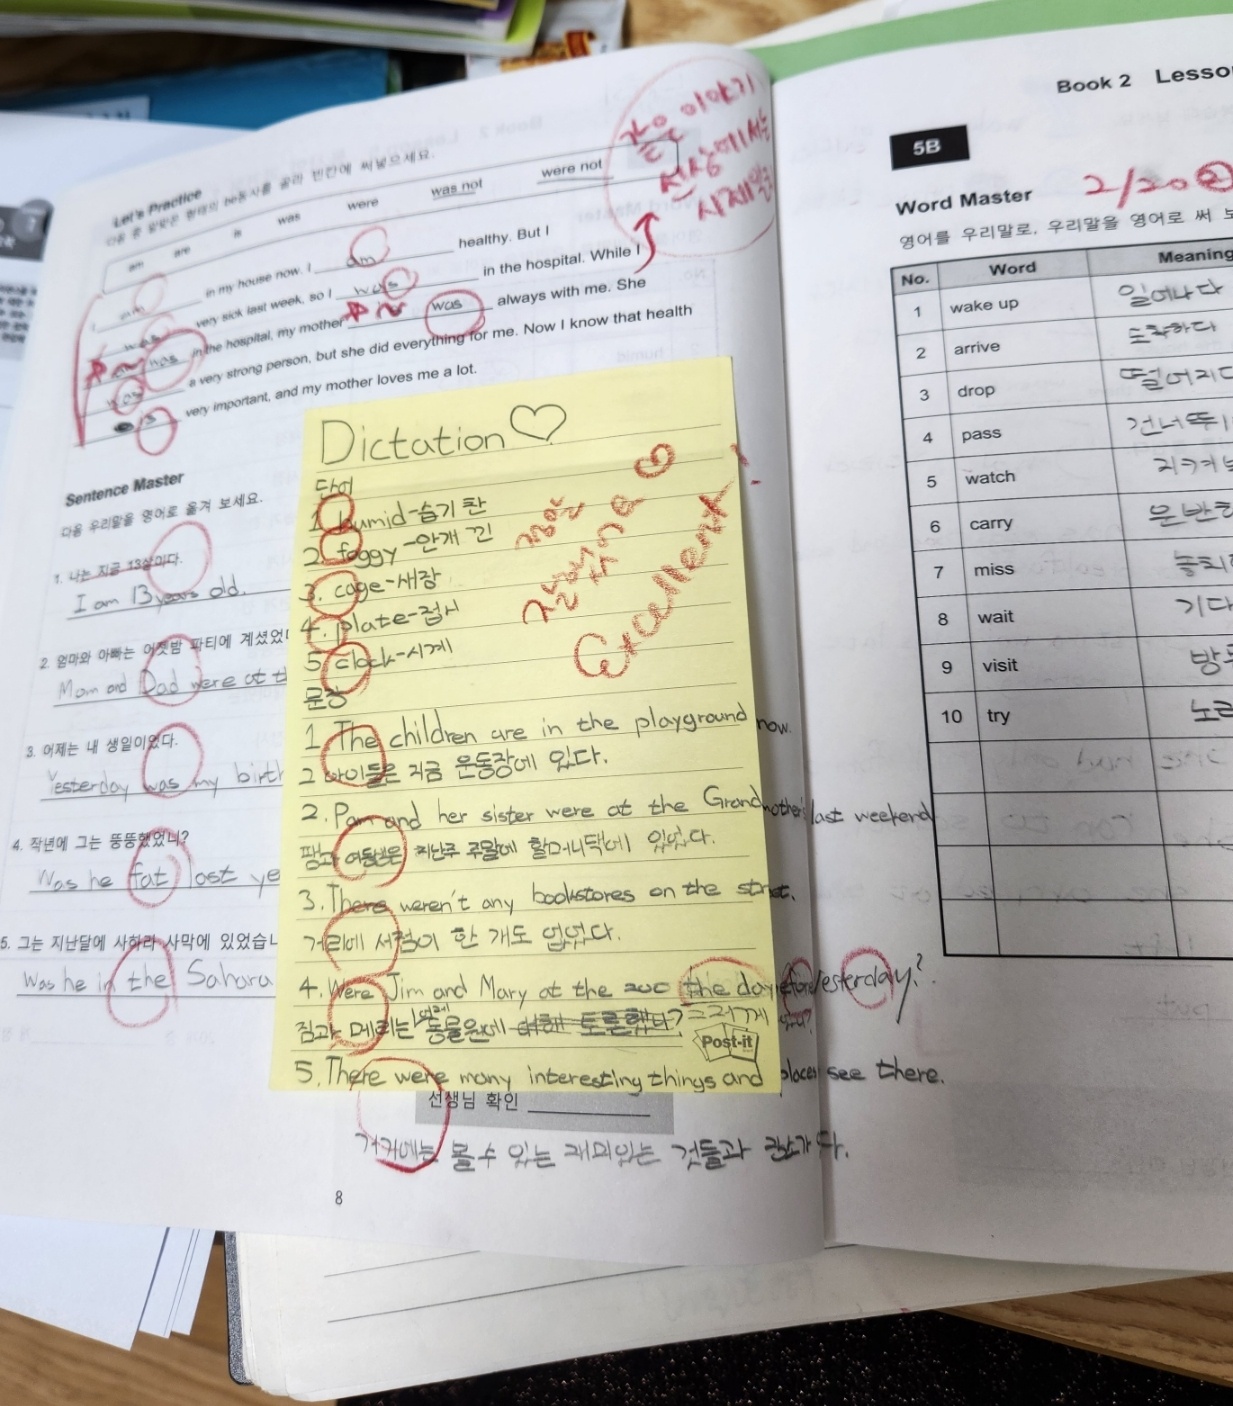 Let's Practice
다음 중 알맞은 형태의 be동사를 골라 빈칸에 써넣으세요.
am are is was were was not were not
am in my house now. I am healthy. But I
was very sick last week, so I was in the hospital. While I
was in the hospital, my mother was always with me. She
was a very strong person, but she did everything for me. Now I know that health
is very important, and my mother loves me a lot.
같은 이야기
선상에서는
시제일
Sentence Master
다음 우리말을 영어로 옮겨 보세요.
1. 나는 지금 13살이다.
I am 13 years old.
2. 엄마와 아빠는 어젯밤 파티에 계셨었
Mom and Dad were at th
3. 어제는 내 생일이었다.
Yesterday was my birth
4. 작년에 그는 뚱뚱했었니?
Was he fat last ye
5. 그는 지난달에 사하라 사막에 있었습니
Was he in the Sahara
Dictation ♡
단어
1. humid-습기 찬
2. foggy-안개 낀
3. cage-새장
4. plate-접시
5. clock-시계
Excellent!
문장
1. The children are in the playground now.
2 아이들은 지금 운동장에 있다.
2. Pam and her sister were at the Grandmother's last weekend
팸과 여동생은 지난주 주말에 할머니댁에 있었다.
3. There weren't any bookstores on the street.
거리에 서점이 한 개도 없었다.
4. Were Jim and Mary at the zoo the day before yesterday?
짐과 메리는 동물원에 그저께
Post-it
5. There were many interesting things and places see there.
선생님 확인
거기에는 볼수 있는 재미있는 것들과
8
Book 2 Lesso
5B
Word Master
2/20
영어를 우리말로, 우리말을 영어로 써 보
No. Word Meaning
1 wake up 일어나다
2 arrive 도착하다
3 drop 떨어지다
4 pass 건너뛰
5 watch 지켜보
6 carry 운반하
7 miss 놓치
8 wait 기다
9 visit 방
10 try 노력